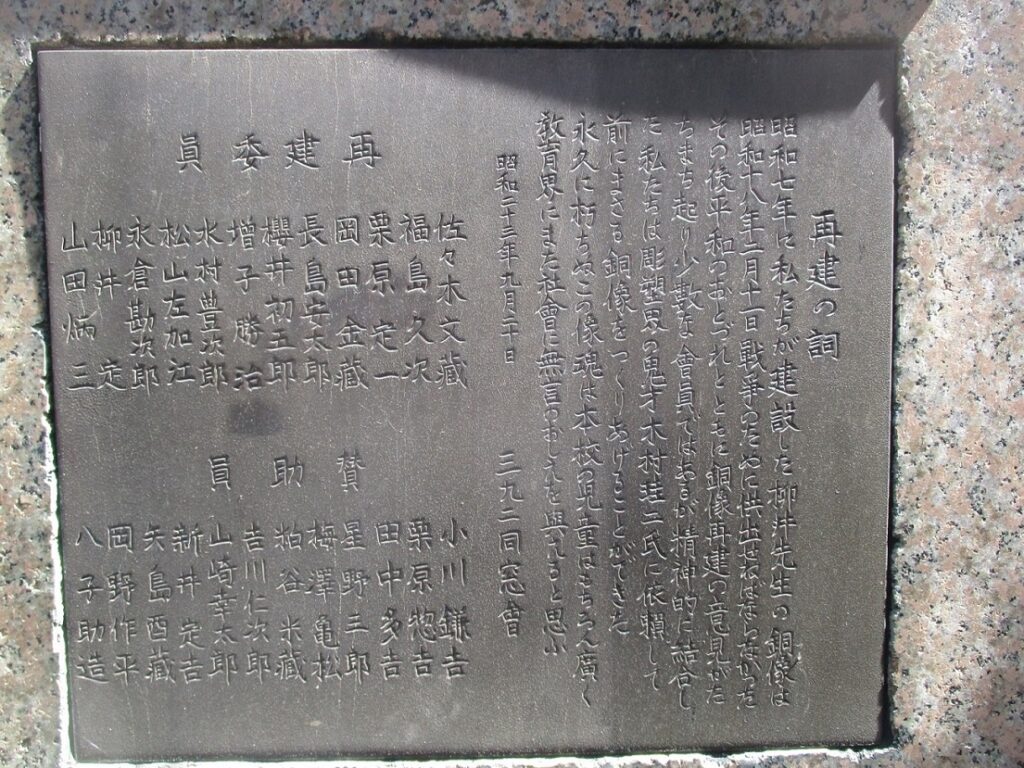 再建の詞
昭和七年に私たちが建設した柳井先生の銅像は
昭和十八年二月十一日戦争のために供出せねばならなかった
その後平和のおとづれとともに銅像再建の意見がた
ちまち起り少数な會員ではあるが精神的に結合し
た私たちは彫塑界の鬼才木村珪二氏に依頼して
前にまさる銅像をつくりあげることができた
永久に朽ちぬこの像魂は本校の児童はもちろん廣く
教育界にまた社會に無言のおしえを與えると思ふ
昭和二十三年九月二十日
三九二同窓會
再建委員
佐々木文藏
福島久次
栗原定一
岡田金藏
長島安太郎
櫻井初五郎
増子勝治
水村豊次郎
松山左加江
永倉勘次郎
柳井定
山田炳三
賛助員
小川鎌吉
栗原惣吉
田中多吉
星野三郎
梅澤亀松
粕谷米藏
吉川仁次郎
山崎幸太郎
新井定吉
矢島酉藏
岡野作平
八子助造